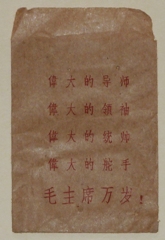 偉大的导师
偉大的領袖
偉大的统帅
偉大的舵手
毛主席万岁！